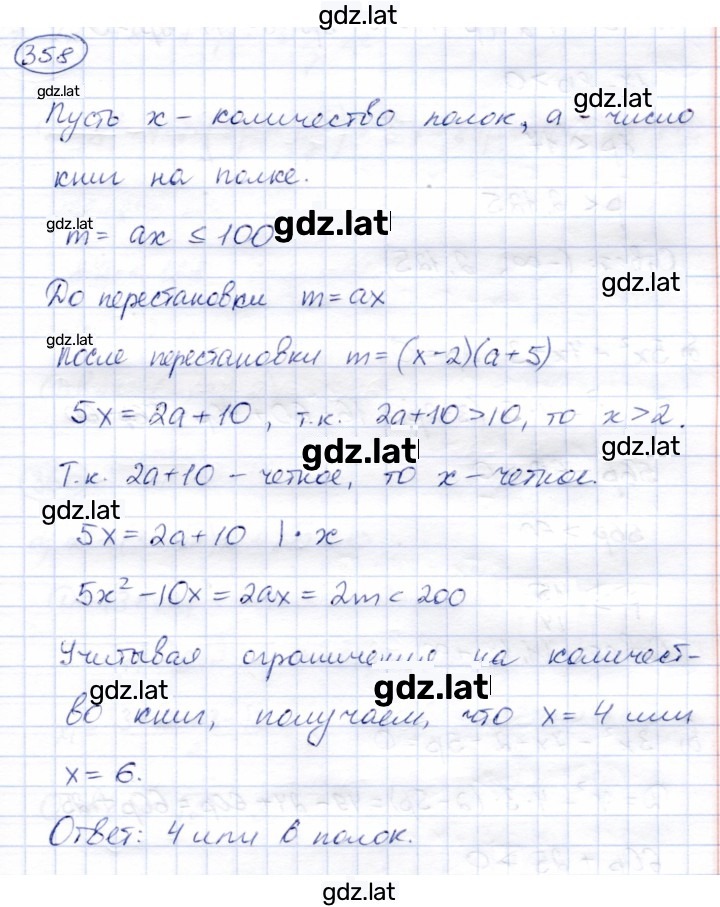 gdz.lat
358
gdz.lat
gdz.lat
Пусть x - количество полок, a - число
книг на полке.
gdz.lat
m = ax ≤ 100
gdz.lat
До перестановки m = ax
gdz.lat
gdz.lat
После перестановки m = (x-2)(a+5)
5x = 2a+10, т.к. 2a+10 > 10, то x > 2.
gdz.lat
gdz.lat
Т.к. 2a+10 - четное, то x - четное.
gdz.lat
5x = 2a+10 | · x
5x² - 10x = 2ax = 2m < 200
Учитывая на количест-
gdz.lat
gdz.lat
во книг, получаем, что x = 4 или
x = 6.
Ответ: 4 или 6 полок.
gdz.lat